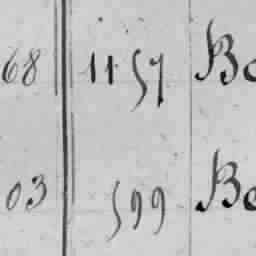 68 1157 Be
03 599 Be